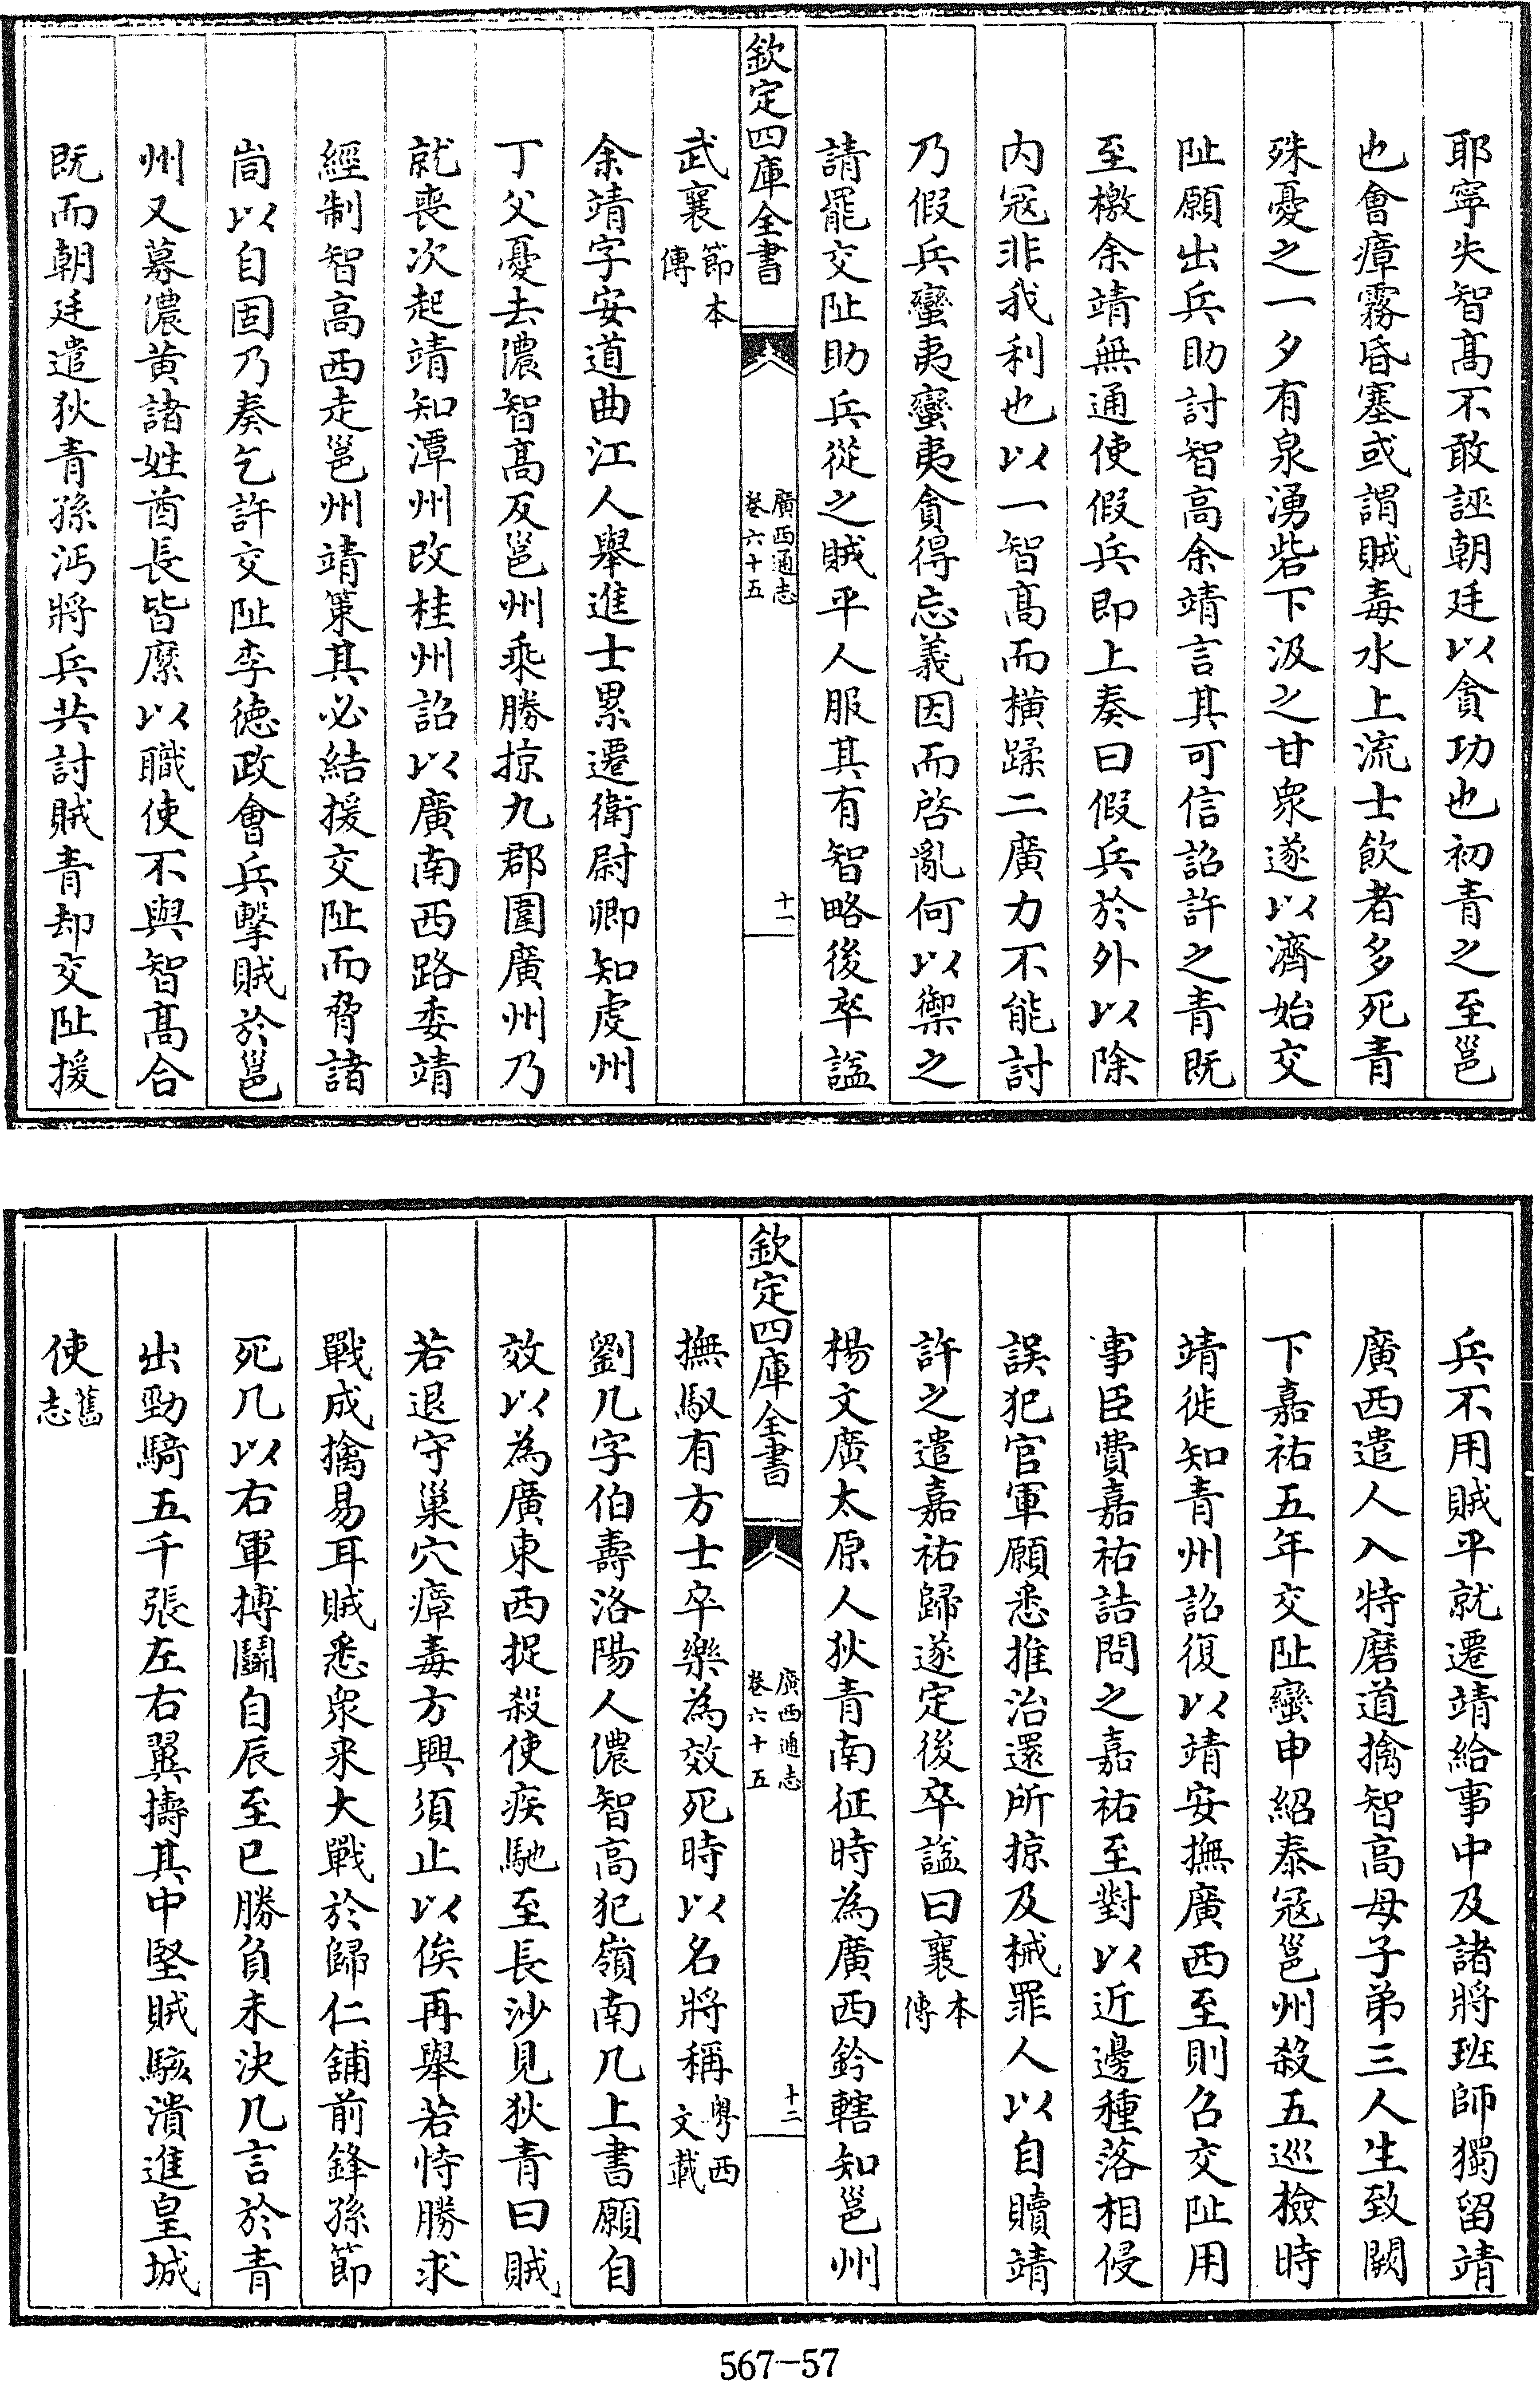 耶寧失智髙不敢誣朝廷以貪功也初青之至邕
也會瘴霧昏塞或謂賊毒水上流士飲者多死青
殊憂之一夕有泉湧砦下汲之甘衆遂以濟始交
阯願出兵助討智高余靖言其可信詔許之青既
至檄余靖無通使假兵即上奏曰假兵於外以除
内冦非我利也以一智髙而橫蹂二廣力不能討
乃假兵蠻夷蠻夷貪得忘義因而啓亂何以禦之
請罷交阯助兵從之賊平人服其有智略後卒諡
欽定四庫全書
廣西通志
卷六十五
十一
武襄節本
傳
余靖字安道曲江人舉進士累遷衛尉卿知虔州
丁父憂去儂智髙反邕州乘勝掠九郡圍廣州乃
就喪次起靖知潭州改桂州詔以廣南西路委靖
經制智高西走邕州靖策其必結援交阯而脅諸
峝以自固乃奏乞許交阯李徳政會兵擊賊於邕
州又募儂黄諸姓酋長皆縻以職使不與智髙合
既而朝廷遣狄青孫沔將兵共討賊青却交阯援
兵不用賊平就遷靖給事中及諸將班師獨留靖
廣西遣人入特磨道擒智高母子弟三人生致闕
下嘉祐五年交阯蠻申紹泰冦邕州殺五巡檢時
靖徙知青州詔復以靖安撫廣西至則召交阯用
事臣費嘉祐詰問之嘉祐至對以近邊種落相侵
誤犯官軍願悉推治還所掠及械罪人以自贖靖
許之遣嘉祐歸遂定後卒諡曰襄本
傳
楊文廣太原人狄青南征時為廣西鈐轄知邕州
欽定四庫全書
廣西通志
卷六十五
十二
撫馭有方士卒樂為效死時以名將稱粤西
文載
劉几字伯壽洛陽人儂智高犯嶺南几上書願自
效以為廣東西捉殺使疾馳至長沙見狄青曰賊
若退守巢穴瘴毒方興須止以俟再舉若恃勝求
戰成擒易耳賊悉衆来大戰於歸仁舖前鋒孫節
死几以右軍搏鬭自辰至巳勝負未決几言於青
出勁騎五千張左右翼擣其中堅賊駭潰進皇城
使舊
志
567-57